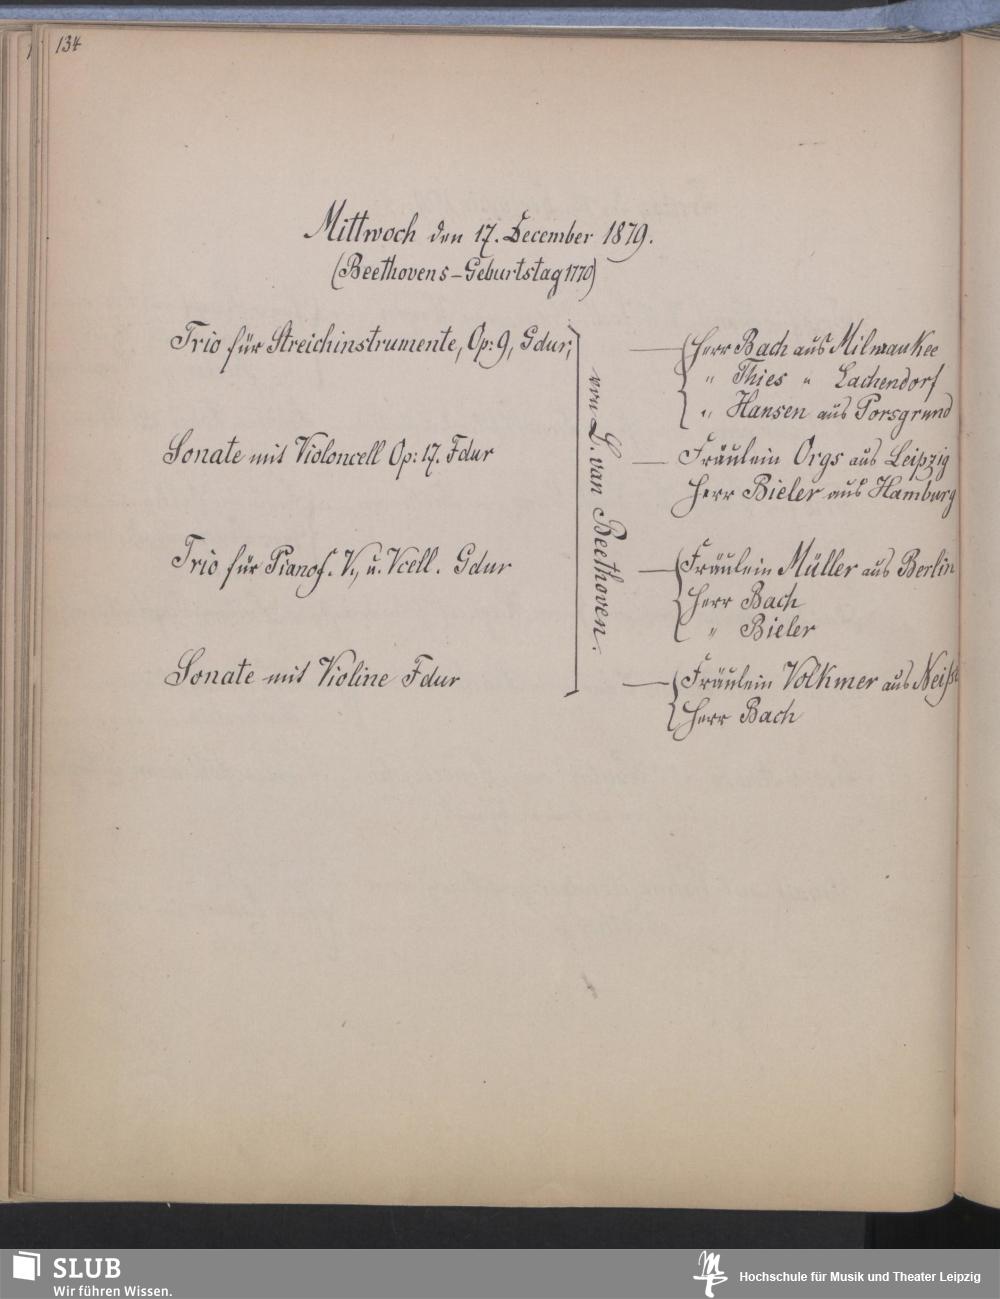 134
Mittwoch den 17. December 1879.
(Beethovens-Geburtstag 1770)
Trio für Streichinstrumente, Op: 9, Gdur,
Herr Bach aus Milwaukee
" Thies " Lachendorf
" Hansen aus Porsgrund
Sonate mit Violoncell Op: 17. Fdur
Fräulein Orgs aus Leipzig
Herr Bieler aus Hamburg
Trio für Pianof. V., u. Vcell. Gdur
Fräulein Müller aus Berlin
Herr Bach
" Bieler
Sonate mit Violine Fdur
Fräulein Volkmer aus Neisse
Herr Bach
von L. van Beethoven.
SLUB
Wir führen Wissen.
Hochschule für Musik und Theater Leipzig